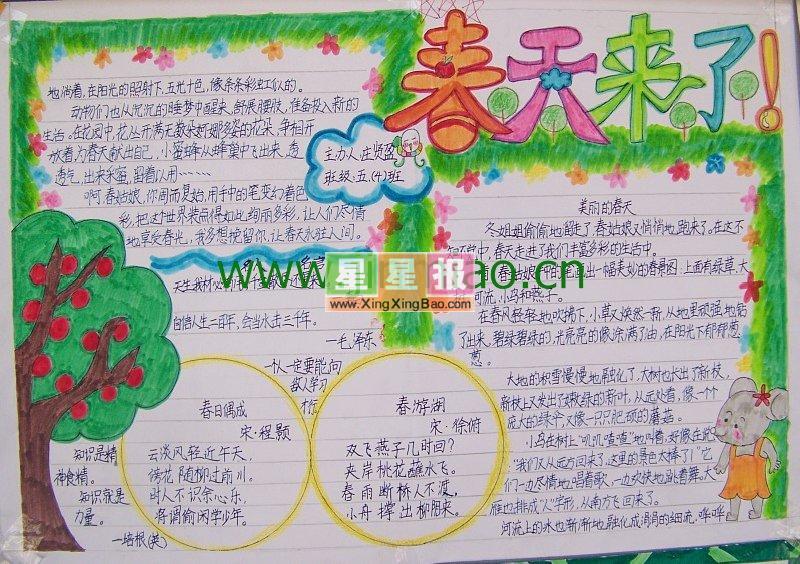 春天来了!
地淌着,在阳光的照射下,五光十色,像条条彩虹似的。
动物们也从沉沉的睡梦中醒来,舒展腰肢,准备投入新的
生活。在花园中,花丛开满无数婀娜多姿的花朵,争相开
放着为春天献出自己,小蜜蜂从蜂巢中飞出来,透
透气,出来采蜜,留着以用……
啊,春姑娘,你周而复始,用手中的笔变幻着色
彩,把这个世界装点得如此绚丽多彩,让人们尽情
地享受春光,我多想挽留你,让春天永驻人间。
主办人:庄贤盈
班级:五.(4)班
天生我材必
自信人生二百年,会当水击三千年。
—毛泽东
一个人一定要能向
敌人学习
美丽的春天
冬姐姐偷偷地溜走了,春姑娘又悄悄地跑来了。在这不
知不觉中,春天走进了我们丰富多彩的生活中。
出一幅美妙的春景图:上面有绿草、大
河流、小鸟和燕子。
在春风轻轻地吹拂下,小草又焕然一新,从地里顽强地钻
了出来,碧绿碧绿的,光亮亮的像涂满了油,在阳光下郁郁葱
葱。
大地的积雪慢慢地融化了,大树也长出了新枝,
新枝上又发出了嫩绿的新叶,从远处看,像一个
庞大的绿伞,又像一只只肥硕的蘑菇。
小鸟在树上“叽叽喳喳”地叫着,好像在说
:“我们又从远方回来了,这里的景色太棒了!”它
们一边尽情地唱着歌,一边欢快地跳着舞。大
雁也排成“人”字形,从南方飞回来了。
河流上的冰也渐渐地融化成涓涓的细流,哗哗
春日偶成
宋·程颢
云淡风轻近午天,
傍花随柳过前川。
时人不识余心乐,
将谓偷闲学少年。
春游湖
宋·徐俯
双飞燕子几时回?
夹岸桃花蘸水飞。
春雨断桥人不渡,
小舟撑出柳阴来。
知识是精
神食粮。
知识就是
力量。
—培根(英)
星星报
www.XingXingBao.com